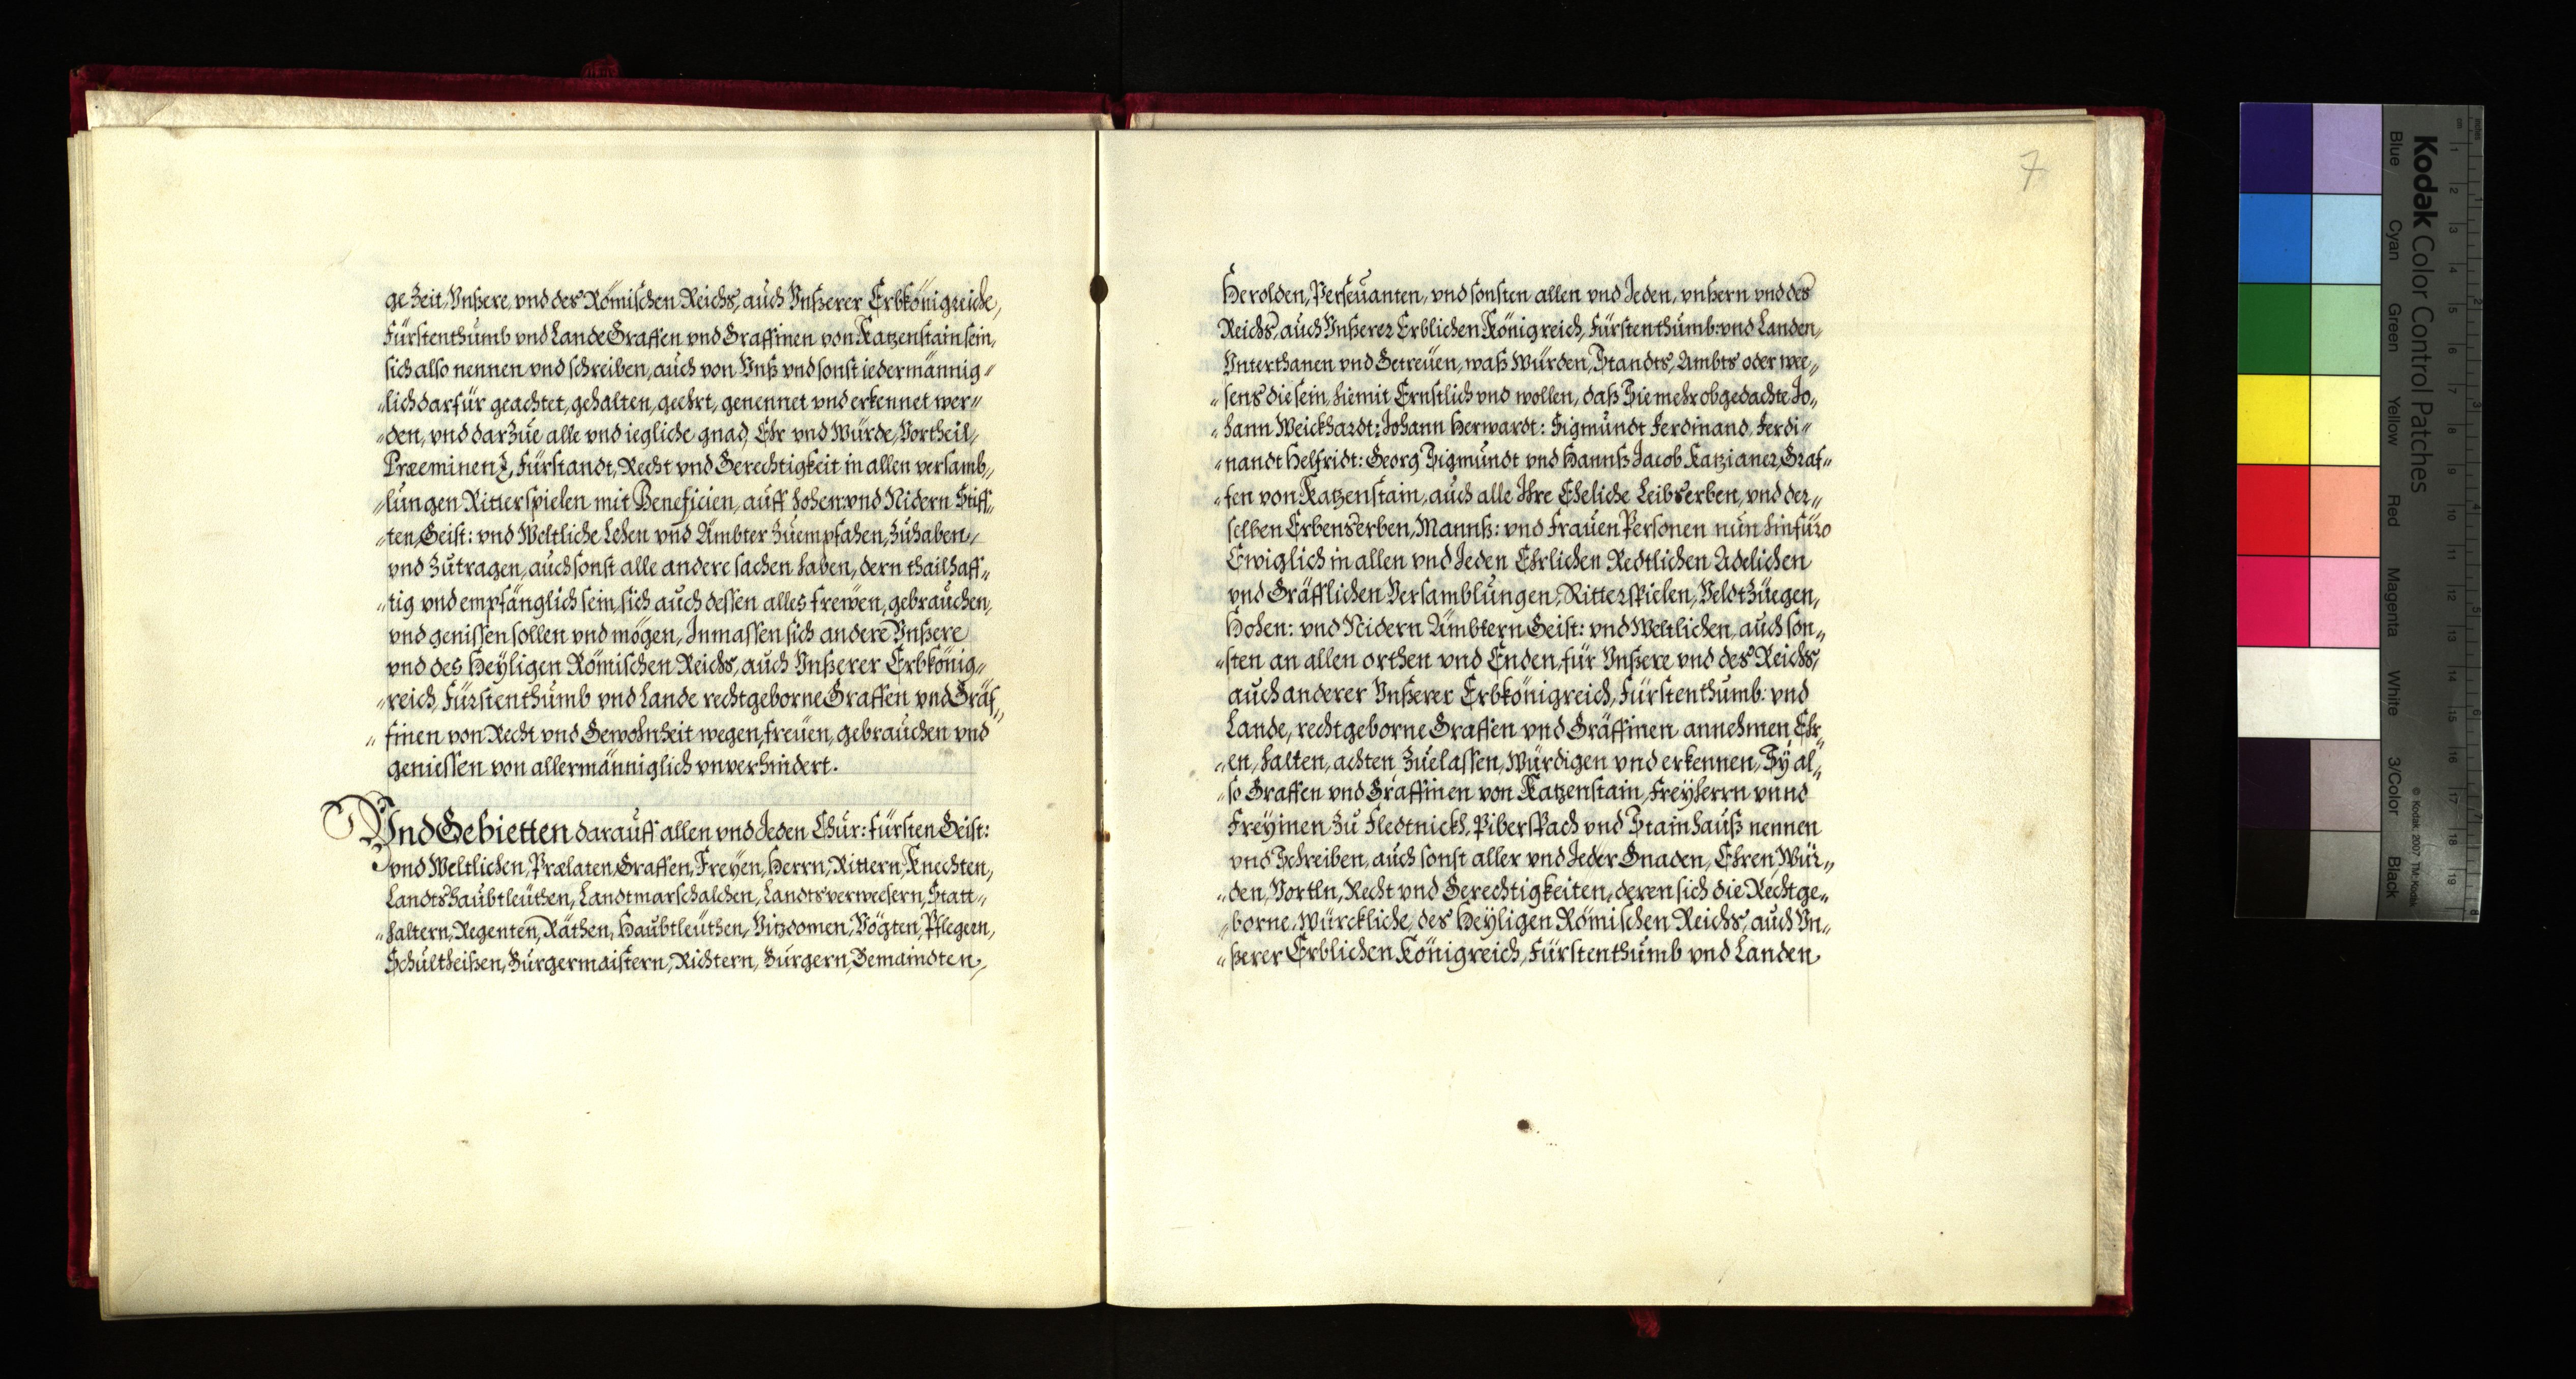 ge Zeit, Vnßere, vnd des Römischen Reichs, auch Vnßerer Erbkönigreiche,
Fürstenthumb vnd Lande Graffen vnd Graffinen von Katzenstain sein,
sich also nennen vnd schreiben, auch von Vnß vnd sonst iedermännig„
„lich darfür geachtet, gehalten, geehrt, genennet vnd erkennet wer„
„den, vnd darzue alle vnd iegliche gnad, Ehr vnd Würde, Vortheil,
Præeminenz, Fürstandt, Recht vnd Gerechtigkeit in allen versamb„
„lungen Ritterspielen mit Beneficien, auff hohen: vnd Nidern Stiff„
„ten, Geist: vnd Weltliche Lehen vnd Ämbter zuempfahen, zuhaben,
vnd zutragen, auch sonst alle andere sachen haben, dern thailhaff„
„tig vnd empfänglich sein, sich auch dessen alles frewen, gebrauchen,
vnd genissen sollen vnd mögen, Inmassen sich andere Vnßere
vnd des Heyligen Römischen Reichs, auch Vnßerer Erbkönig„
„reich, Fürstenthumb vnd Lande rechtgeborne Graffen vnd Gräf„
„finen von Recht vnd Gewohnheit wegen, freuen, gebrauchen vnd
geniessen von allermänniglich vnverhindert.
Vnd Gebietten darauff allen vnd Jeden Chur: fürsten Geist:
vnd Weltlichen, Prælaten, Graffen, Freyen, Herrn, Rittern, Knechten,
Landtshaubtleuthen, Landtmarschalchen, Landtsverweesern, Statt„
„haltern, Regenten, Räthen, Haubtleuthen, Vitzdomen, Vögten, Pflegern,
Schultheißen, Burgermaistern, Richtern, Burgern, Gemaindten,
7
Herolden, Perseuanten, vnd sonsten allen vnd Jeden, vnßern vnd des
Reichs, auch Vnßerer Erblichen Königreich, Fürstenthumb: vnd Landen,
Vnterthanen vnd Getreüen, waß Würden, Standts, Ambts oder wee„
„sens die sein, hiemit Ernstlich vnd wollen, daß Sie mehr obgedachte Jo„
„hann Weickhardt: Johann Herwardt: Sigmundt Ferdinand, Ferdi„
„nandt Helfridt: Georg Sigmundt vnd Hannß Jacob Katzianer, Graf„
„fen von Katzenstain, auch alle Ihre Eheliche Leibserben, vnd der„
selben Erbenserben, Mannß: vnd Frauen Personen nun hinfüro
Ewiglich in allen vnd Jeden Ehrlichen Redtlichen Adelichen
vnd Gräfflichen Versamblungen, Ritterspielen, Veldtzüegen,
Hohen: vnd Nidern Ämbtern Geist: vnd Weltlichen, auch son„
„sten an allen orthen vnd Enden, für Vnßere vnd des Reichs,
auch anderer Vnßerer Erbkönigreich, Fürstenthumb: vnd
Lande, rechtgeborne Graffen vnd Gräffinen annehmen Ehr„
„en, halten, achten Zuelassen, Würdigen vnd erkennen, Sy al„
„so Graffen vnd Gräffinen von Katzenstain, Freyherrn vnnd
Freyinen zu Fledtnickh, Piberspach vnd Stainhauß nennen
vnd Schreiben, auch sonst aller vnd Jeder Gnaden, Ehren, Wür„
„den, Vortln, Recht vnd Gerechtigkeiten, deren sich die Rechtge„
„borne, Würckliche, des Heyligen Römischen Reichs, auch Vn„
„ßerer Erblichen Königreich, Fürstenthumb vnd Landen
Kodak Color Control Patches
© Kodak, 2007 TM: Kodak
Blue Cyan Green Yellow Red Magenta White 3/Color Black